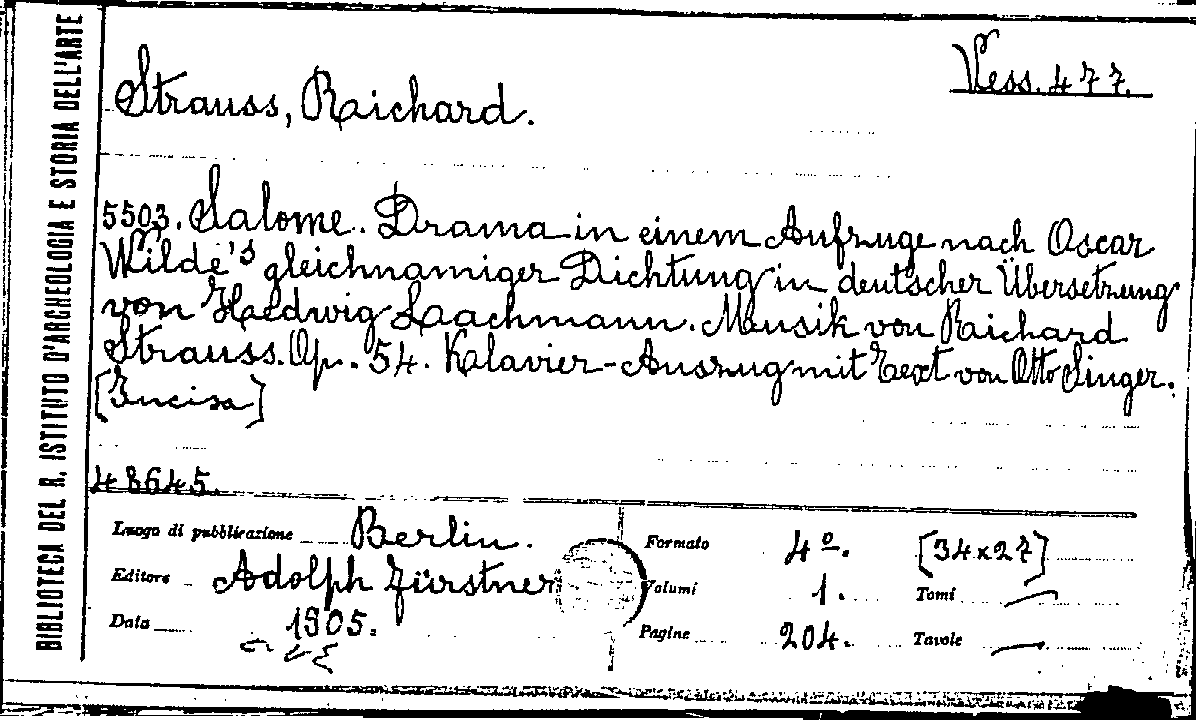 BIBLIOTECA DEL R. ISTITUTO D'ARCHEOLOGIA E STORIA DELL'ARTE
Vess. 477.
Strauss, Richard.
5503. Salome. Drama in einem Aufzuge nach Oscar
Wilde's gleichnamiger Dichtung in deutscher Übersetzung
von Hedwig Lachmann. Musik von Richard
Strauss. Op. 54. Klavier-Auszug mit Text von Otto Singer.
[Incisa]
48645.
Luogo di pubblicazione Berlin.
Editore Adolph Fürstner
Data 1905.
Formato 4º. [34x27]
Volumi 1. Tomi —
Pagine 204. Tavole —